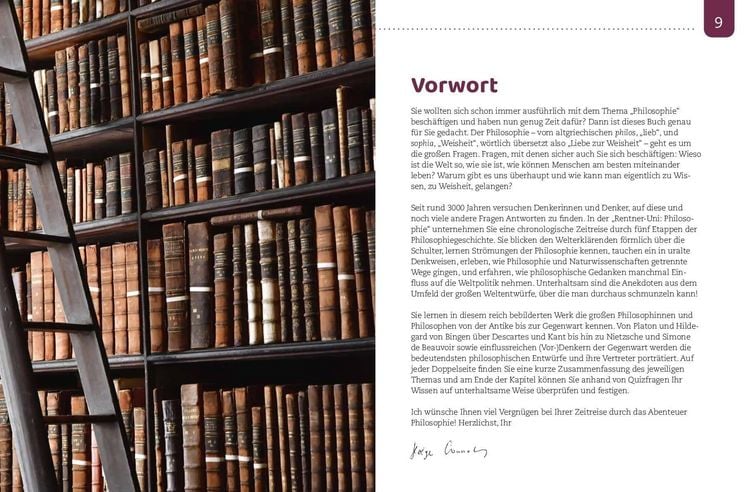 9
Vorwort
Sie wollten sich schon immer ausführlich mit dem Thema „Philosophie“
beschäftigen und haben nun genug Zeit dafür? Dann ist dieses Buch genau
für Sie gedacht. Der Philosophie – vom altgriechischen philos, „lieb“, und
sophia, „Weisheit“, wörtlich übersetzt also „Liebe zur Weisheit“ – geht es um
die großen Fragen. Fragen, mit denen sicher auch Sie sich beschäftigen: Wieso
ist die Welt so, wie sie ist, wie können Menschen am besten miteinander
leben? Warum gibt es uns überhaupt und wie kann man eigentlich zu Wis-
sen, zu Weisheit, gelangen?
Seit rund 3000 Jahren versuchen Denkerinnen und Denker, auf diese und
noch viele andere Fragen Antworten zu finden. In der „Rentner-Uni: Philoso-
phie“ unternehmen Sie eine chronologische Zeitreise durch fünf Etappen der
Philosophiegeschichte. Sie blicken den Welterklärenden förmlich über die
Schulter, lernen Strömungen der Philosophie kennen, tauchen ein in uralte
Denkweisen, erleben, wie Philosophie und Naturwissenschaften getrennte
Wege gingen, und erfahren, wie philosophische Gedanken manchmal Ein-
fluss auf die Weltpolitik nehmen. Unterhaltsam sind die Anekdoten aus dem
Umfeld der großen Weltentwürfe, über die man durchaus schmunzeln kann!
Sie lernen in diesem reich bebilderten Werk die großen Philosophinnen und
Philosophen von der Antike bis zur Gegenwart kennen. Von Platon und Hilde-
gard von Bingen über Descartes und Kant bis hin zu Nietzsche und Simone
de Beauvoir sowie einflussreichen (Vor-)Denkern der Gegenwart werden die
bedeutendsten philosophischen Entwürfe und ihre Vertreter porträtiert. Auf
jeder Doppelseite finden Sie eine kurze Zusammenfassung des jeweiligen
Themas und am Ende der Kapitel können Sie anhand von Quizfragen Ihr
Wissen auf unterhaltsame Weise überprüfen und festigen.
Ich wünsche Ihnen viel Vergnügen bei Ihrer Zeitreise durch das Abenteuer
Philosophie! Herzlichst, Ihr